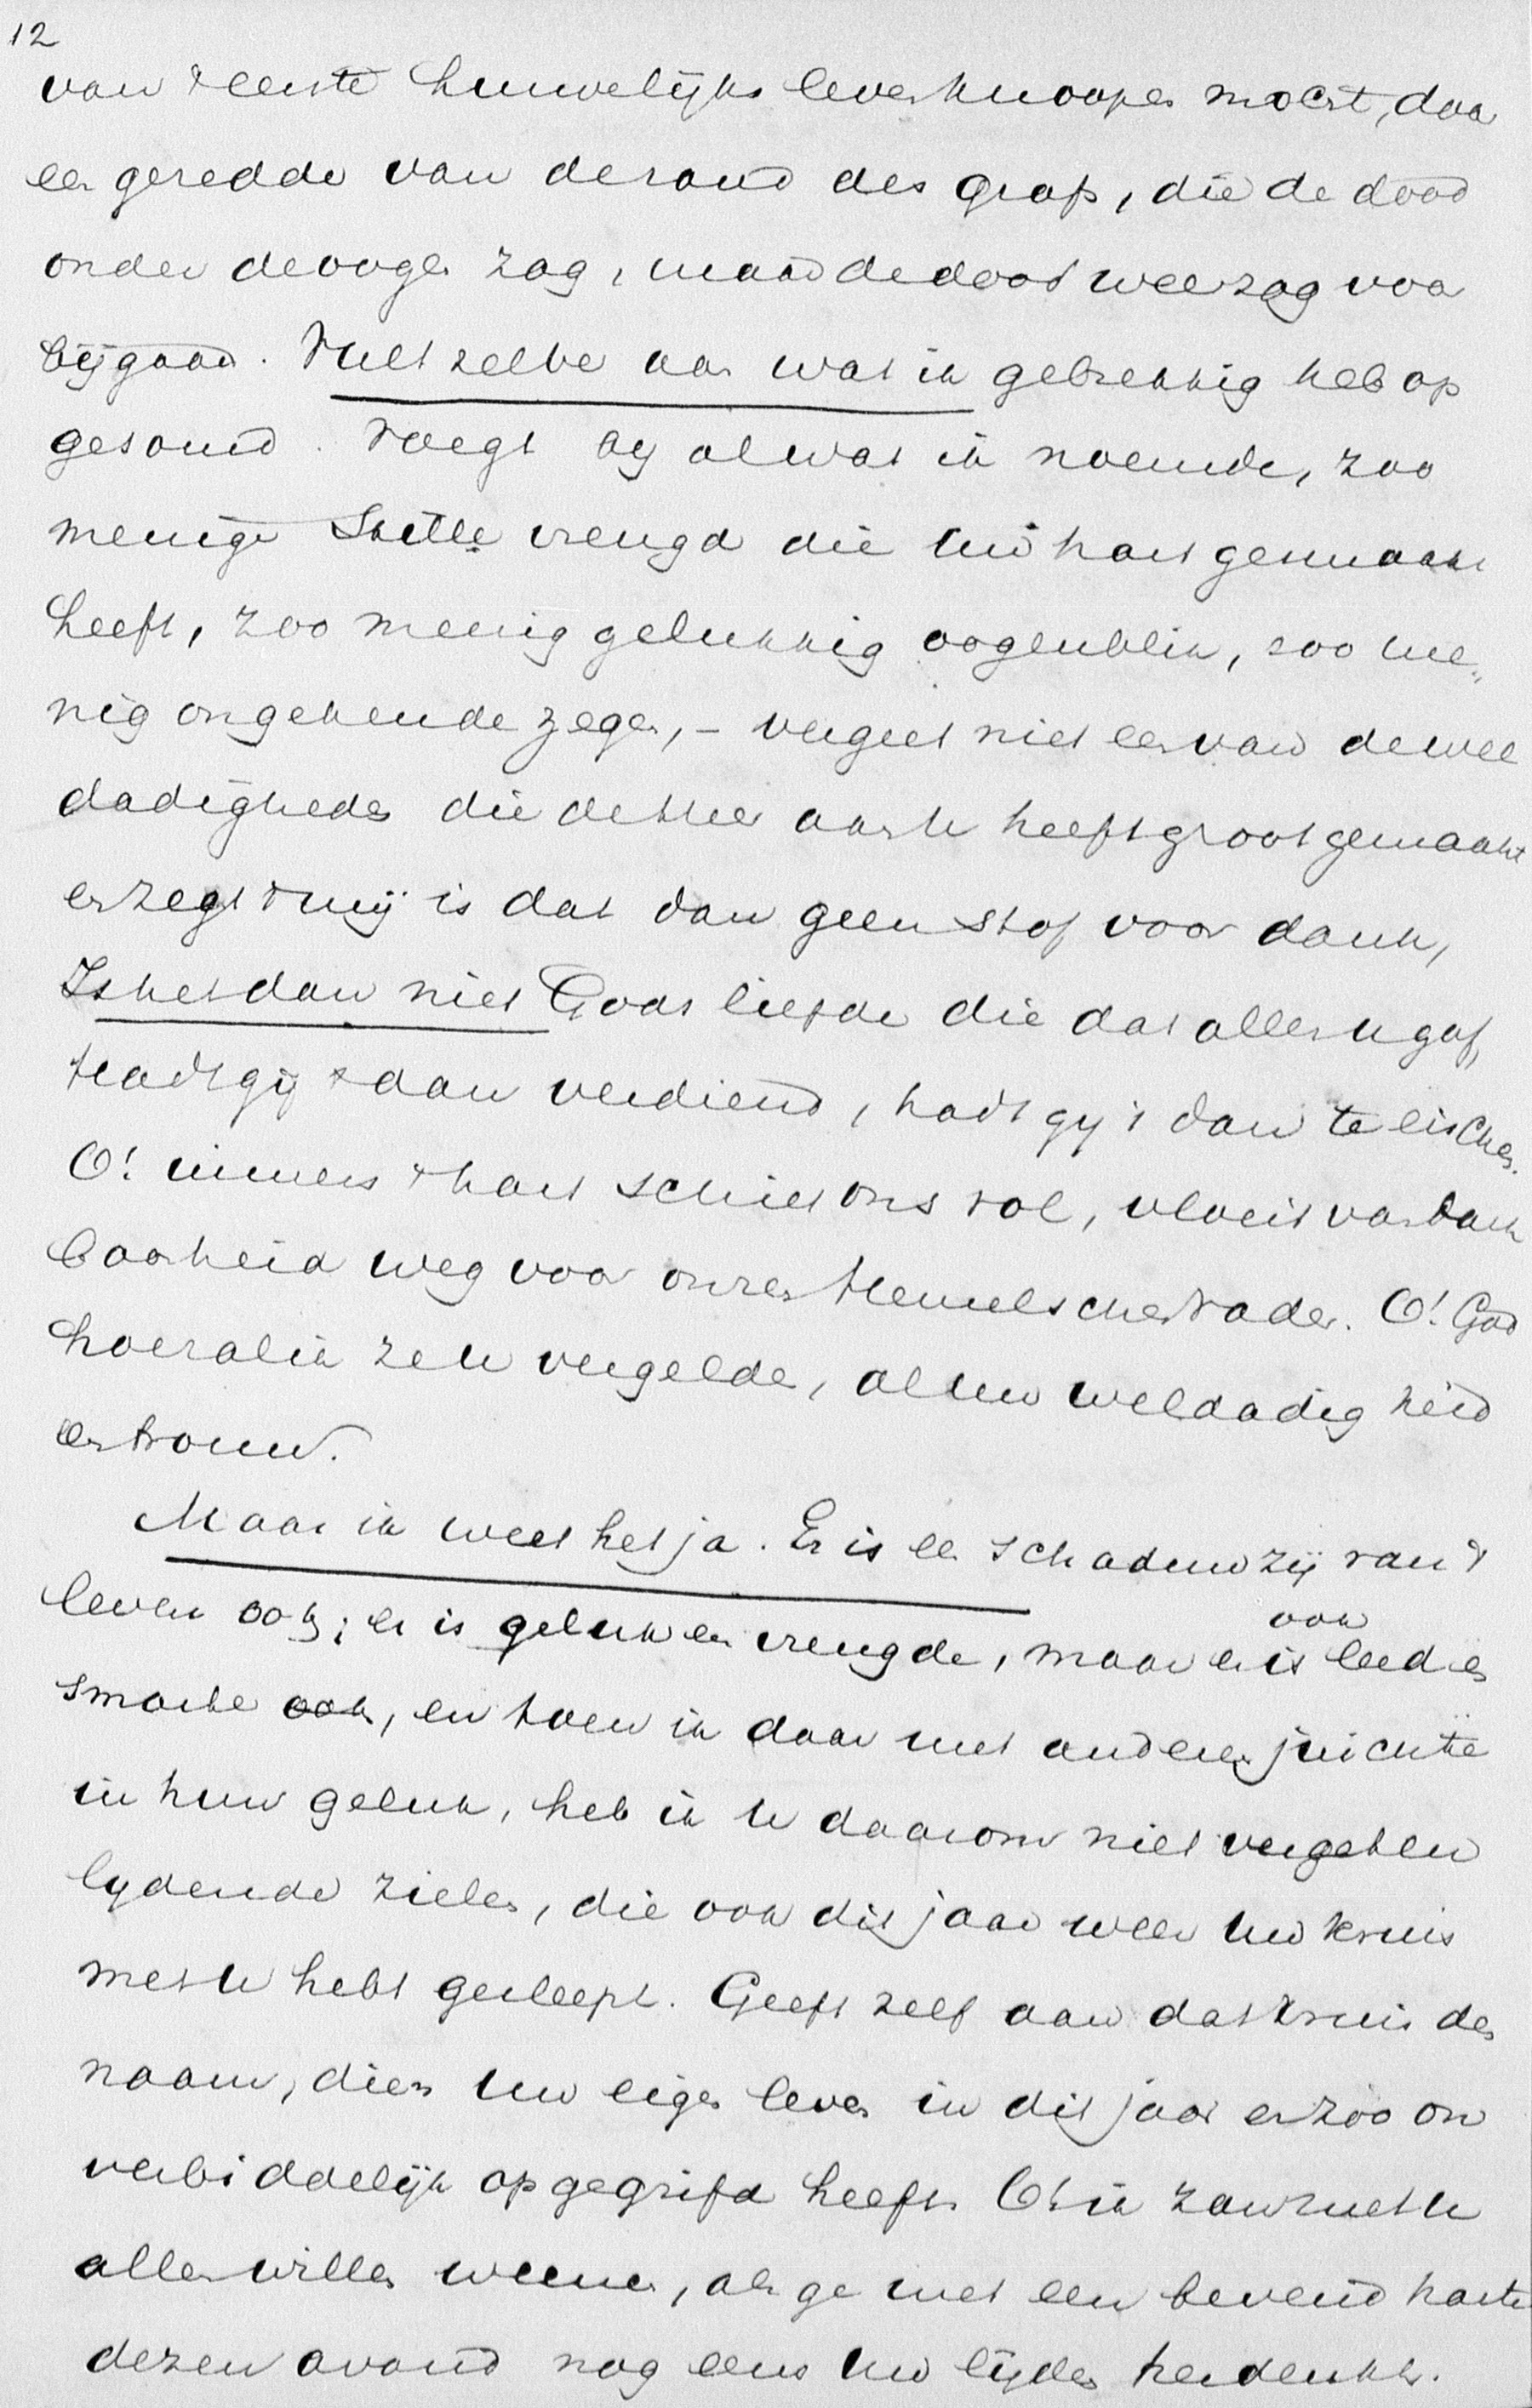 12
van 't eerste huwelijks leven knoopen mocht, daar
een geredde van de rand des grafs, die de dood
onder de oogen zag, maar de dood weer zag voor
bij gaan. Vult zelve aan wat ik gebrekkig heb op
gesomd. Voegt bij al wat ik noemde, zoo
menige stille vreugd die uw hart gesmaakt
heeft, zoo menig gelukkig oogenblik, zoo me„
nig ongekende zegen, – vergeet niet een van de wel
dadigheden die de Heer aan u heeft groot gemaakt
en zegt 't mij is dat dan geen stof voor dank,
Is het dan niet Gods liefde die dat alles u gaf,
Hadt gij 't dan verdiend, hadt gij 't dan te eischen.
O! immers 't hart schiet ons vol, vloeit van dank
baarheid weg voor onzen Hemelschen Vader. O! God
hoe zal ik ze u vergelden, al uw weldadig heid
en trouw.
Maar ik weet het ja. Er is een schaduw zij van 't
leven ook; er is geluk en vreugde, maar er is ook leed en
smarte ook, en toen ik daar met anderen juichte
in hun geluk, heb ik u daarom niet vergeten
lydende zielen, die ook dit jaar weer uw kruis
met u hebt gesleept. Geeft zelf aan dat kruis den
naam, dien uw eigen leven in dit jaar er zoo on
verbiddelijk op gegrifd heeft. O! ik zou met u
allen willen weenen, als ge met een bevend harte
dezen avond nog eens uw lijden herdenkt.